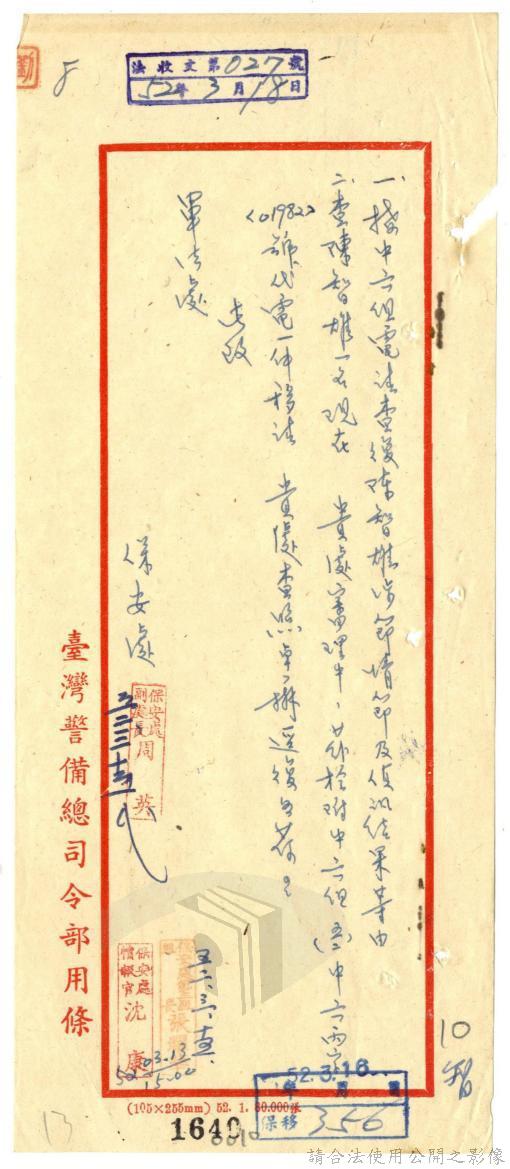 法收文第027號
52年3月18日
一、據中六組電請查復陳智雄涉節情節及偵訊結果等由
二、查陳智雄一名現在 貴處審理中、茲檢附中六組(52)中六丙字
〈01982〉號代電一件移請 貴處查照卓辦逕復為荷
此致
軍法處
保安處
保安處副處長周 英
五二、三、十五
保安處情報官沈 康
52 03.13
15.00
臺灣警備總司令部用條
52.3.16
保移 350
10
智
(105×255mm) 52. 1. 60.000張
1640
13
請合法使用公開之影像